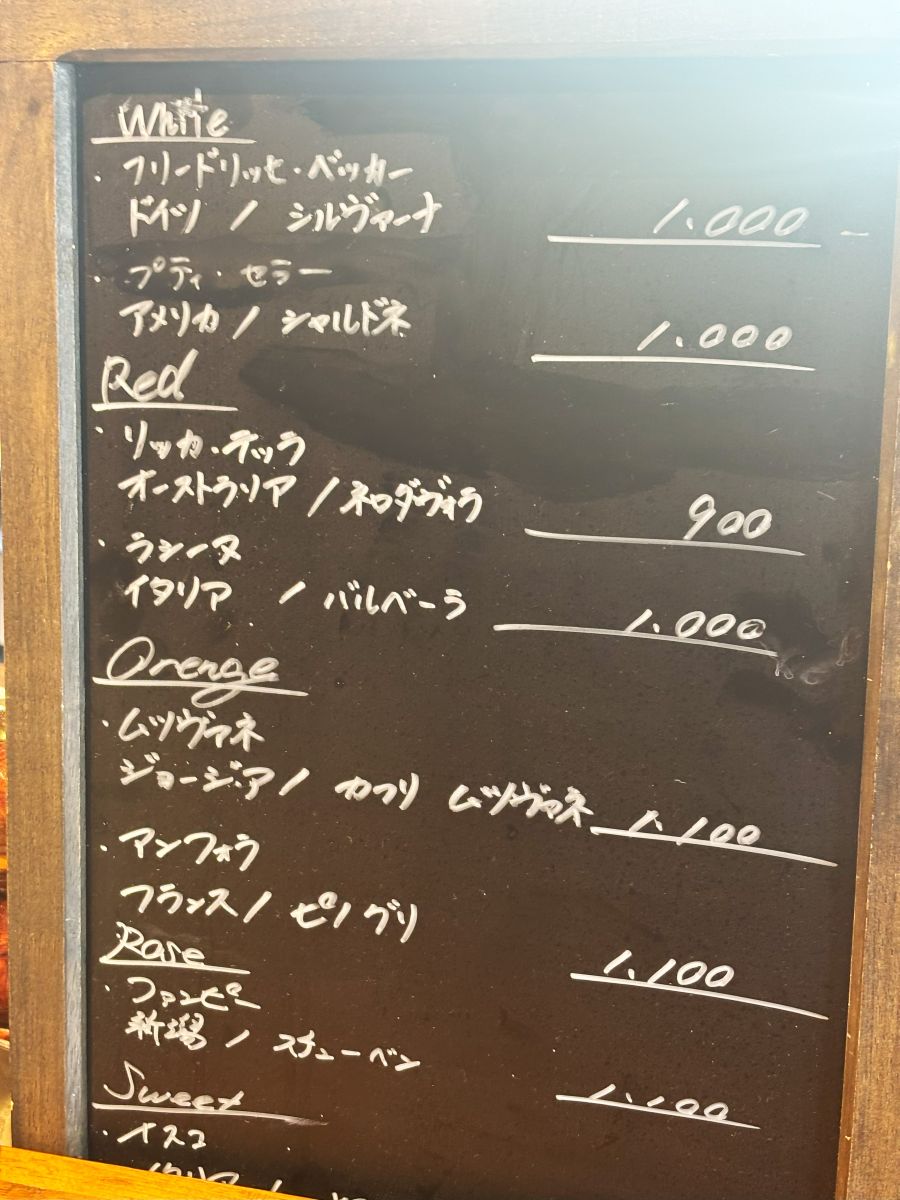 White
・フリードリッヒ・ベッカー
ドイツ / シルヴァーナ 1.000
・プティ・セラー
アメリカ / シャルドネ 1.000
Red
・リッカ・テッラ
オーストラリア / ネロダヴォラ 900
・ラシーヌ
イタリア / バルベーラ 1.000
Orenge
・ムツヴァネ
ジョージア / カフリ ムツヴァネ 1.100
・アンフォラ
フランス / ピノグリ
1.100
Rose
・ファンピー
新潟 / スチューベン
1.100
Sweet
イタリア /